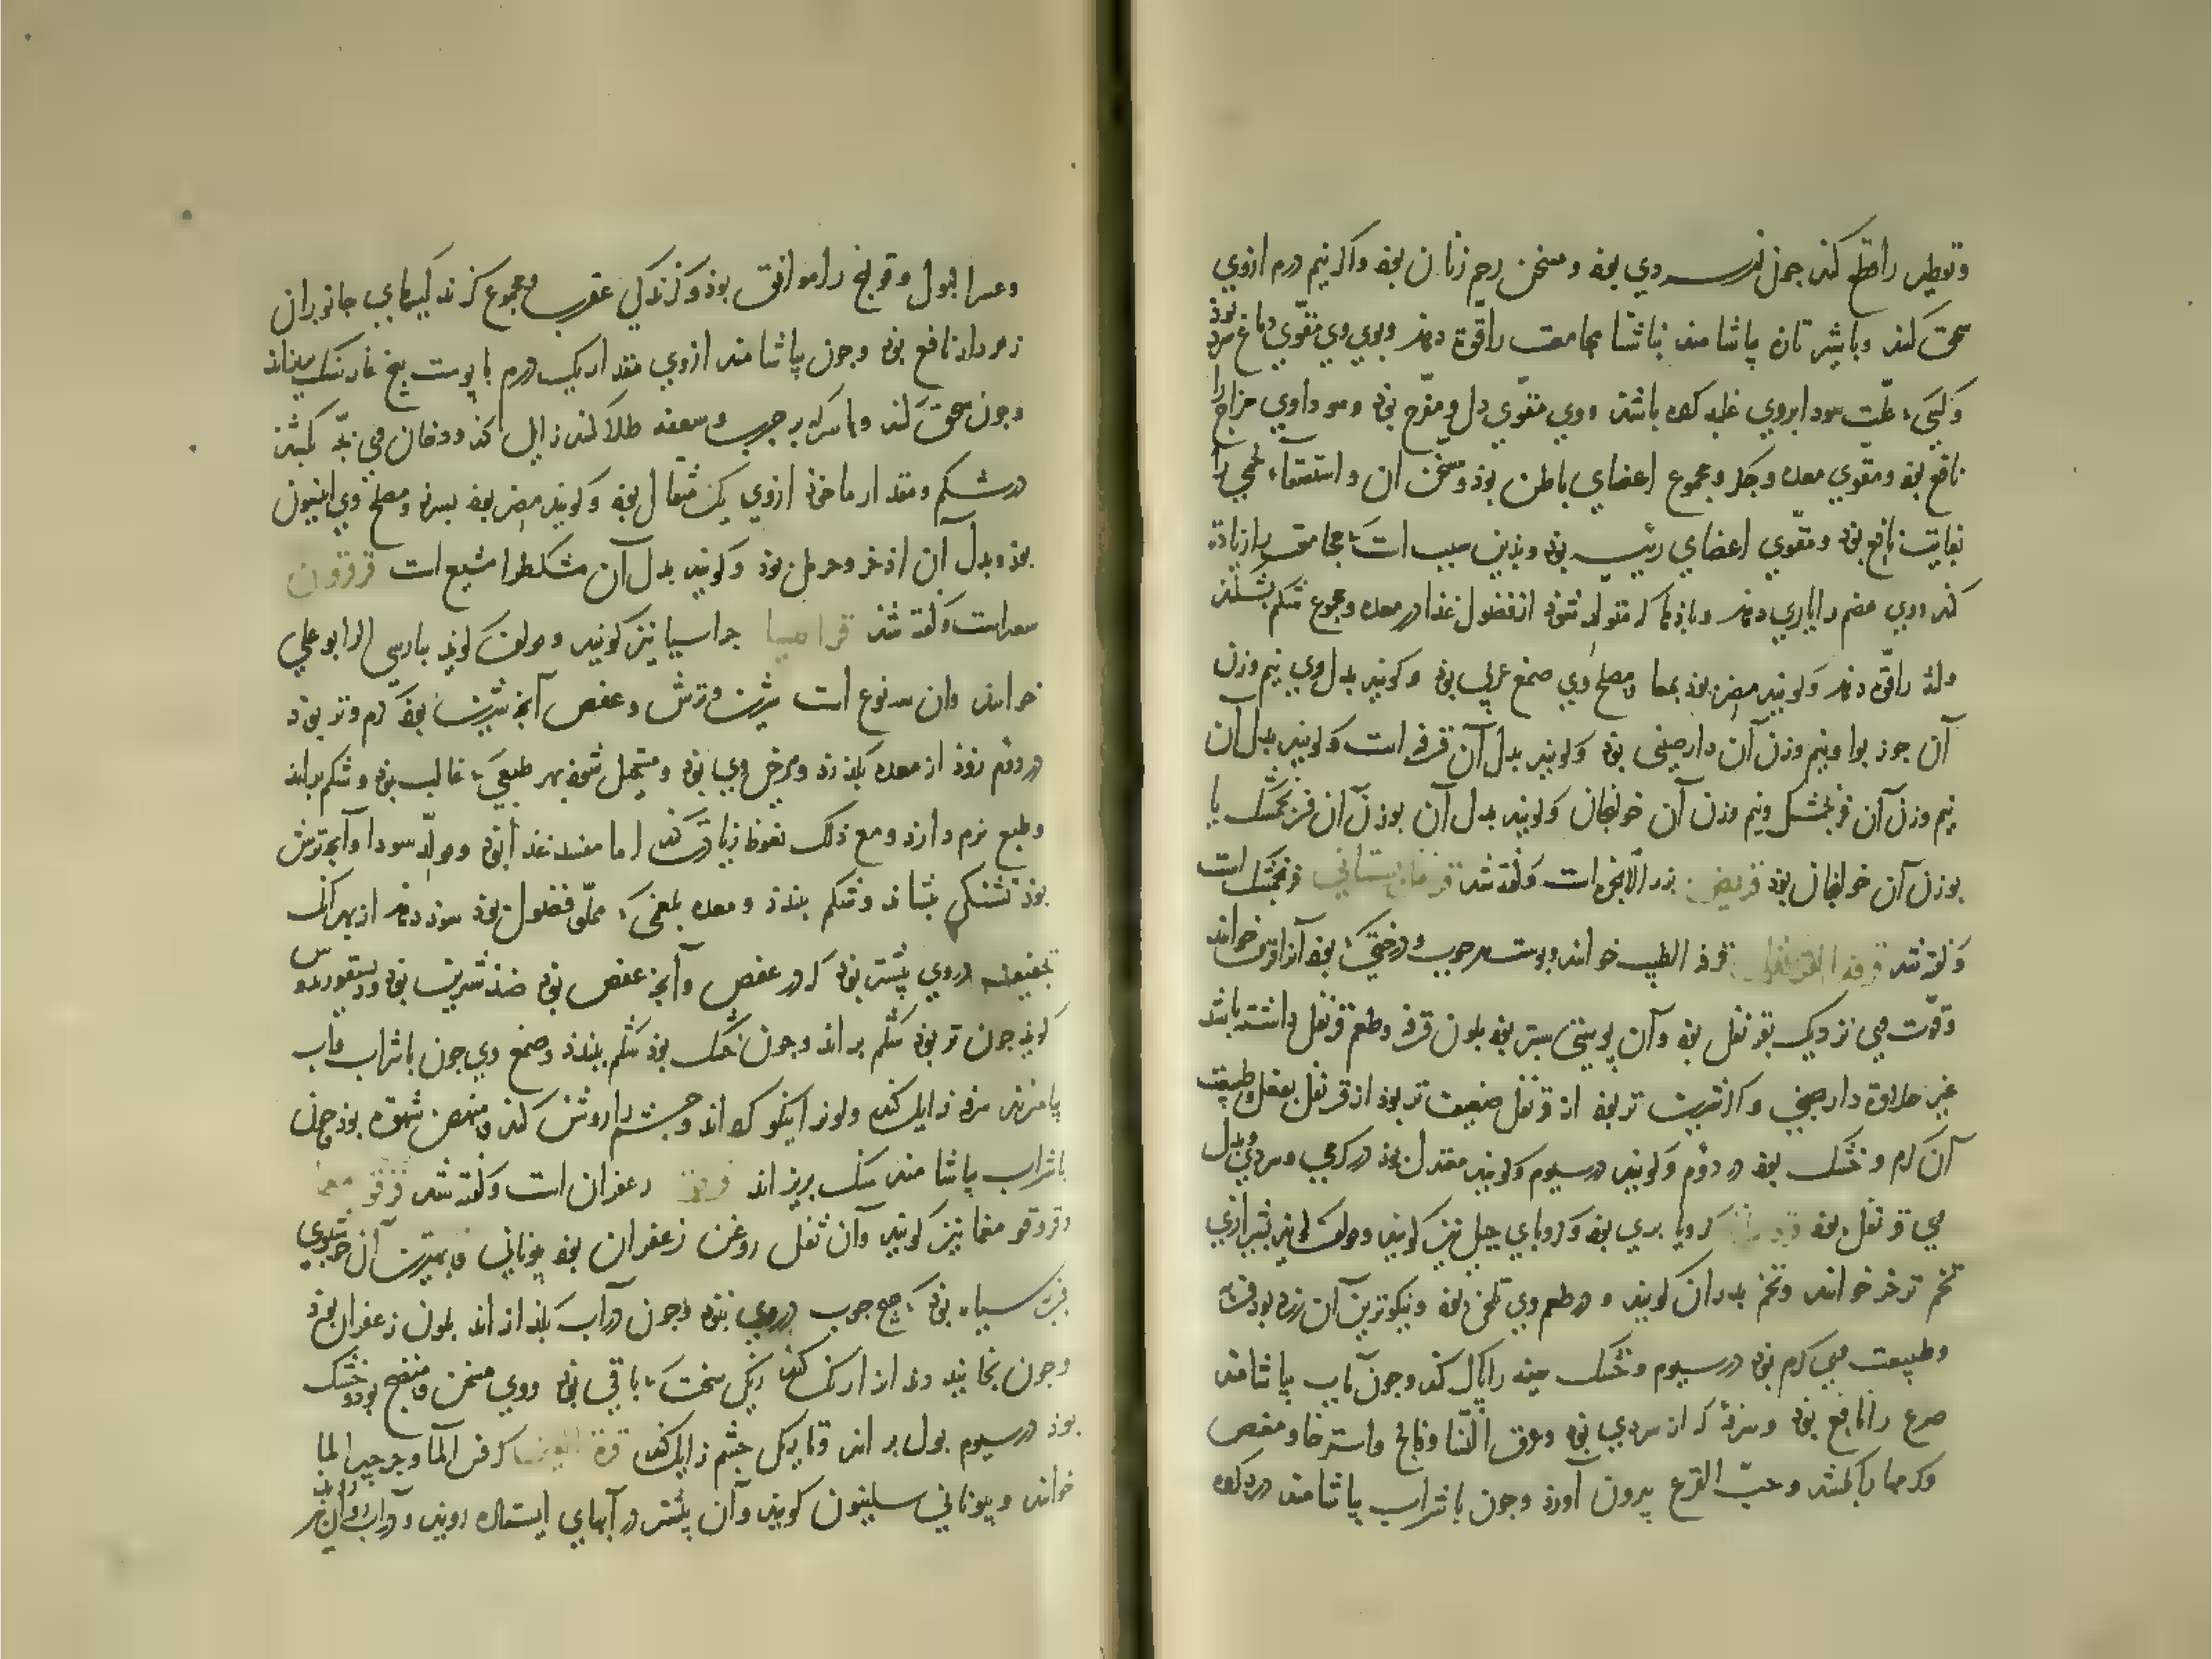 وتقطیر را قطع کند چون از سردی بود و مسخن رحم زنان بود و اگر نیم درم ازوی
سحق کنند و با شیر تازه بیاشامند ناشتا مجامعت را قوة دهد و بوی وی مقوی دماغ سرد بود
وکسی که علت سودا بروی غلبه کرده باشد ووی مقوی دل و مفرح بود و سوداوی مزاج را
نافع بود و مقوی معده و جگر و مجموع اعضای باطن بود و مسخن آن و استسقاء لحمی را
بغایت نافع بود و مقوی اعضای رئیسه بود و بدین سبب است که مجامعت را زیادة
کند ووی هضم را یاری دهد و بادها که متولد شود از فضول غذا در معده و مجموع شکم بشکند
ولثه را قوة دهد و گویند مضر بود بمعا و مصلح وی صمغ عربی بود و گویند بدل وی نیم وزن
آن جوز بوا و نیم وزن آن دارصینی بود و گویند بدل آن قرفه است و گویند بدل آن
نیم وزن آن فرنجمشک و نیم وزن آن خولنجان و گویند بدل آن بوزن آن فرنجمشک یا
بوزن آن خولنجان بود قریض بزر الانجره است و گفته شد قرنفل بستانی فرنجمشک است
و گفته شد قرفه القرنفل قرفه الطیب خوانند و پوست چوب درختی بود آنرا قرفه خوانند
وقوت وی نزدیک بقرنفل بود و آن پوستی ستبر بود بلون قرفه و طعم قرنفل داشته باشد
غیر حلاوة دارصینی و اگر شیرین تر بود از قرنفل ضعیف تر بود از قرنفل بفعل و طبیعت
آن گرم و خشک بود در دوم و گویند در سیوم و گویند معتدل بود در گرمی و سردی و بدل
وی قرنفل بود کرویا بری بود و کرویای جبلی نیز گویند و مولف گوید بشیرازی
تخم ترخر خوانند و تخم بدران گویند و در طعم وی تلخی بود و نیکوترین آن زرد بود فربه
وطبیعت وی گرم بود در سیوم و خشک سینه را پاک کند و چون بآب بیاشامند
صرع را نافع بود و سرفه که از سردی بود و عرق النسا و فالج و استرخا و مغص
وکرمها را بکشد و حب القرع بیرون آورد و چون با شراب بیاشامند درد گرده
وعسر البول و قولنج را موافق بود و گزندگی عقرب و مجموع گزندگیهای جانوران
زهردار نافع بود و چون بیاشامند ازوی مقدار یک درم با پوست بیخ غار سنگ بریزاند
وچون سحق کنند و با سرکه بر جرب و سعفه طلا کنند زایل کند و دخان وی بچه بکشد
در شکم و مقدار ماخوذ ازوی یک مثقال بود و گویند مضر بود بسپرز و مصلح وی انیسون
بود و بدل آن اذخر و حرمل بود و گویند بدل آن مشکطرامشیع است
است و گفته شد قراصیا جراسیا نیز گویند و مولف گوید بپارسی آلو ابوعلی
خوانند وان سه نوع است شیرین و ترش و عفص آنچه شیرین بود گرم و تر بود
در دوم زود از معده بگذرد و مرخی وی بود و مستحیل شود بهر طبعی که غالب بود و شکم براند
وطبع نرم دارد و مع ذلک نعوظ زیادة کند اما مفسد غذا بود و مولد سودا و آنچه ترش
بود تشنگی بنشاند و شکم ببندد و معده بلغمی که ممتلی فضول بود سود دهد از بهر آنکه
تجفیف در وی بیشتر بود که در عفص و آنچه عفص بود ضد شیرین بود و دیسقوریدوس
گوید چون تر بود شکم براند و چون خشک بود شکم ببندد و صمغ وی چون با شراب و آب
بیامیزند سرفه زایل کند و لون را نیکو گرداند و چشم را روشن کند و منهض شهوة بود چون
با شراب بیاشامند سنگ بریزاند زعفران است و گفته شد قرقومعما
وقروقومغما نیز گویند و آن ثفل روغن زعفران بود یونانی و بهترین آن خوشبوی
سیاه بود که هیچ چوب در وی نبود و چون در آب بگذارند بلون زعفران بود
وچون بخایند دندان را رنگ کند رنگی سخت که باقی بود ووی مسخن و منضج بود و خشک
بود در سیوم بول براند و تاریکی چشم زایل کند قرة العین کرفس الما و جرجیر الما
خوانند و بیونانی سلینون گویند و آن بیشتر در آبهای ایستاده روید